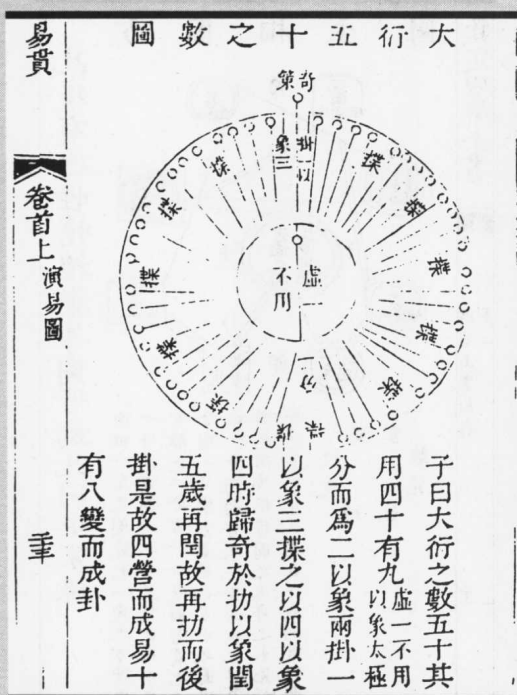 大衍五十之數圖
奇策
掛一以象三
揲
揲
揲
揲
揲
揲
揲
揲
揲
揲
揲
揲
分
虛一不用
子曰大衍之數五十其
用四十有九虛一不用以象太極
分而爲二以象兩掛一
以象三揲之以四以象
四時歸奇於扐以象閏
五歲再閏故再扐而後
掛是故四營而成易十
有八變而成卦
易貫
卷首上
演易圖